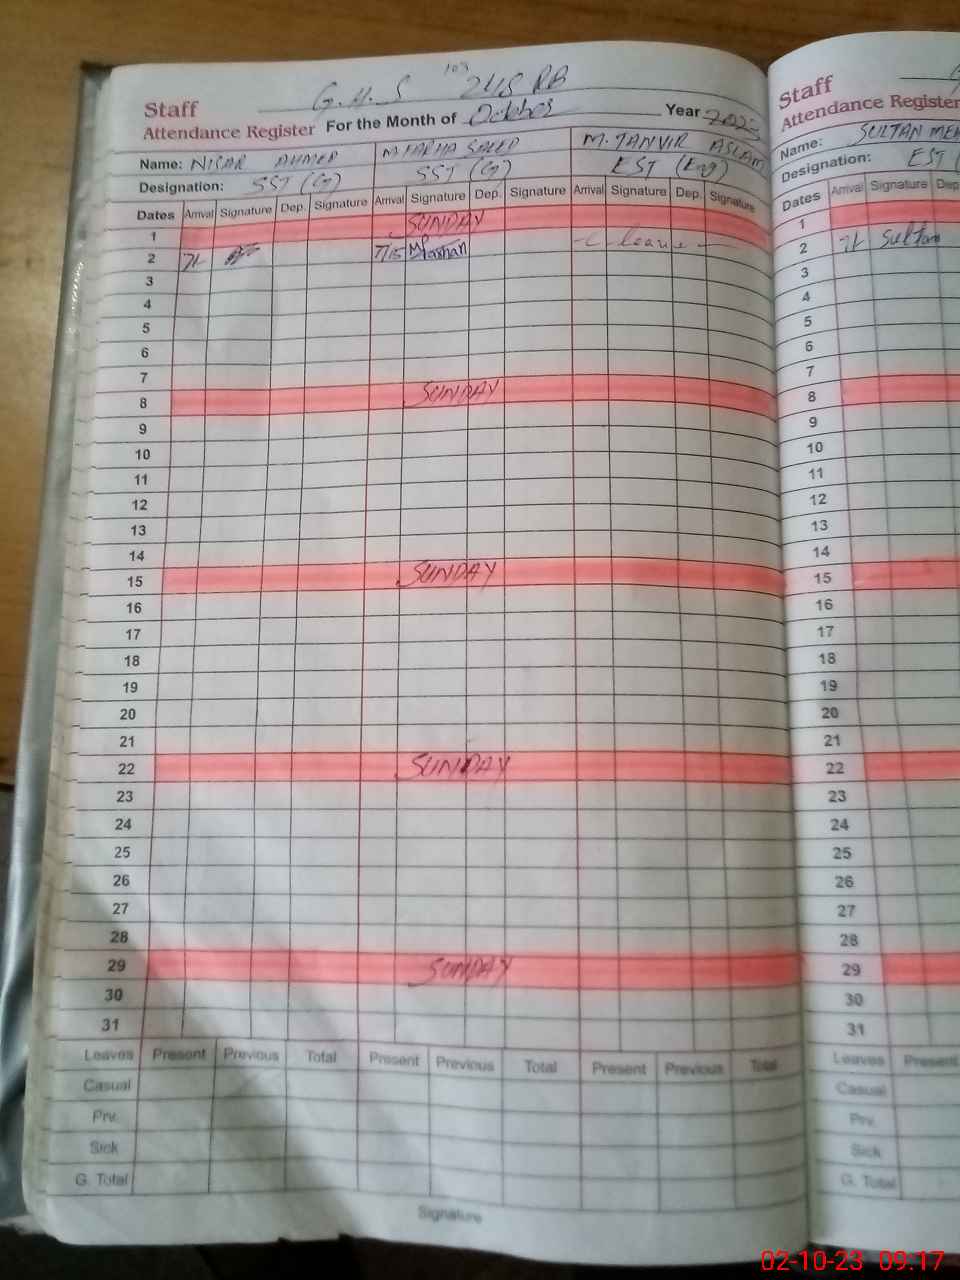 103
G.H.S 248 RB
Staff
Attendance Register For the Month of October Year 2023
Name: NISAR AHMED M. FARHA SAEED M. TANVIR ASLAM
Designation: SST (G) SST (G) EST (Eng)
Dates Arrival Signature Dep. Signature Arrival Signature Dep. Signature Arrival Signature Dep. Signature
1 SUNDAY
2 7/- 7/15 - C leave -
3
4
5
6
7
8 SUNDAY
9
10
11
12
13
14
15 SUNDAY
16
17
18
19
20
21
22 SUNDAY
23
24
25
26
27
28
29 SUNDAY
30
31
Leaves Present Previous Total Present Previous Total Present Previous Total
Casual
Prv.
Sick
G. Total
Signature
Staff
Attendance Register
Name: SULTAN MEH
Designation: EST (
Dates Arrival Signature Dep
1
2 7/- Sultan
3
4
5
6
7
8
9
10
11
12
13
14
15
16
17
18
19
20
21
22
23
24
25
26
27
28
29
30
31
Leaves Present
Casual
Prv.
Sick
G. Total
02-10-23 09:17